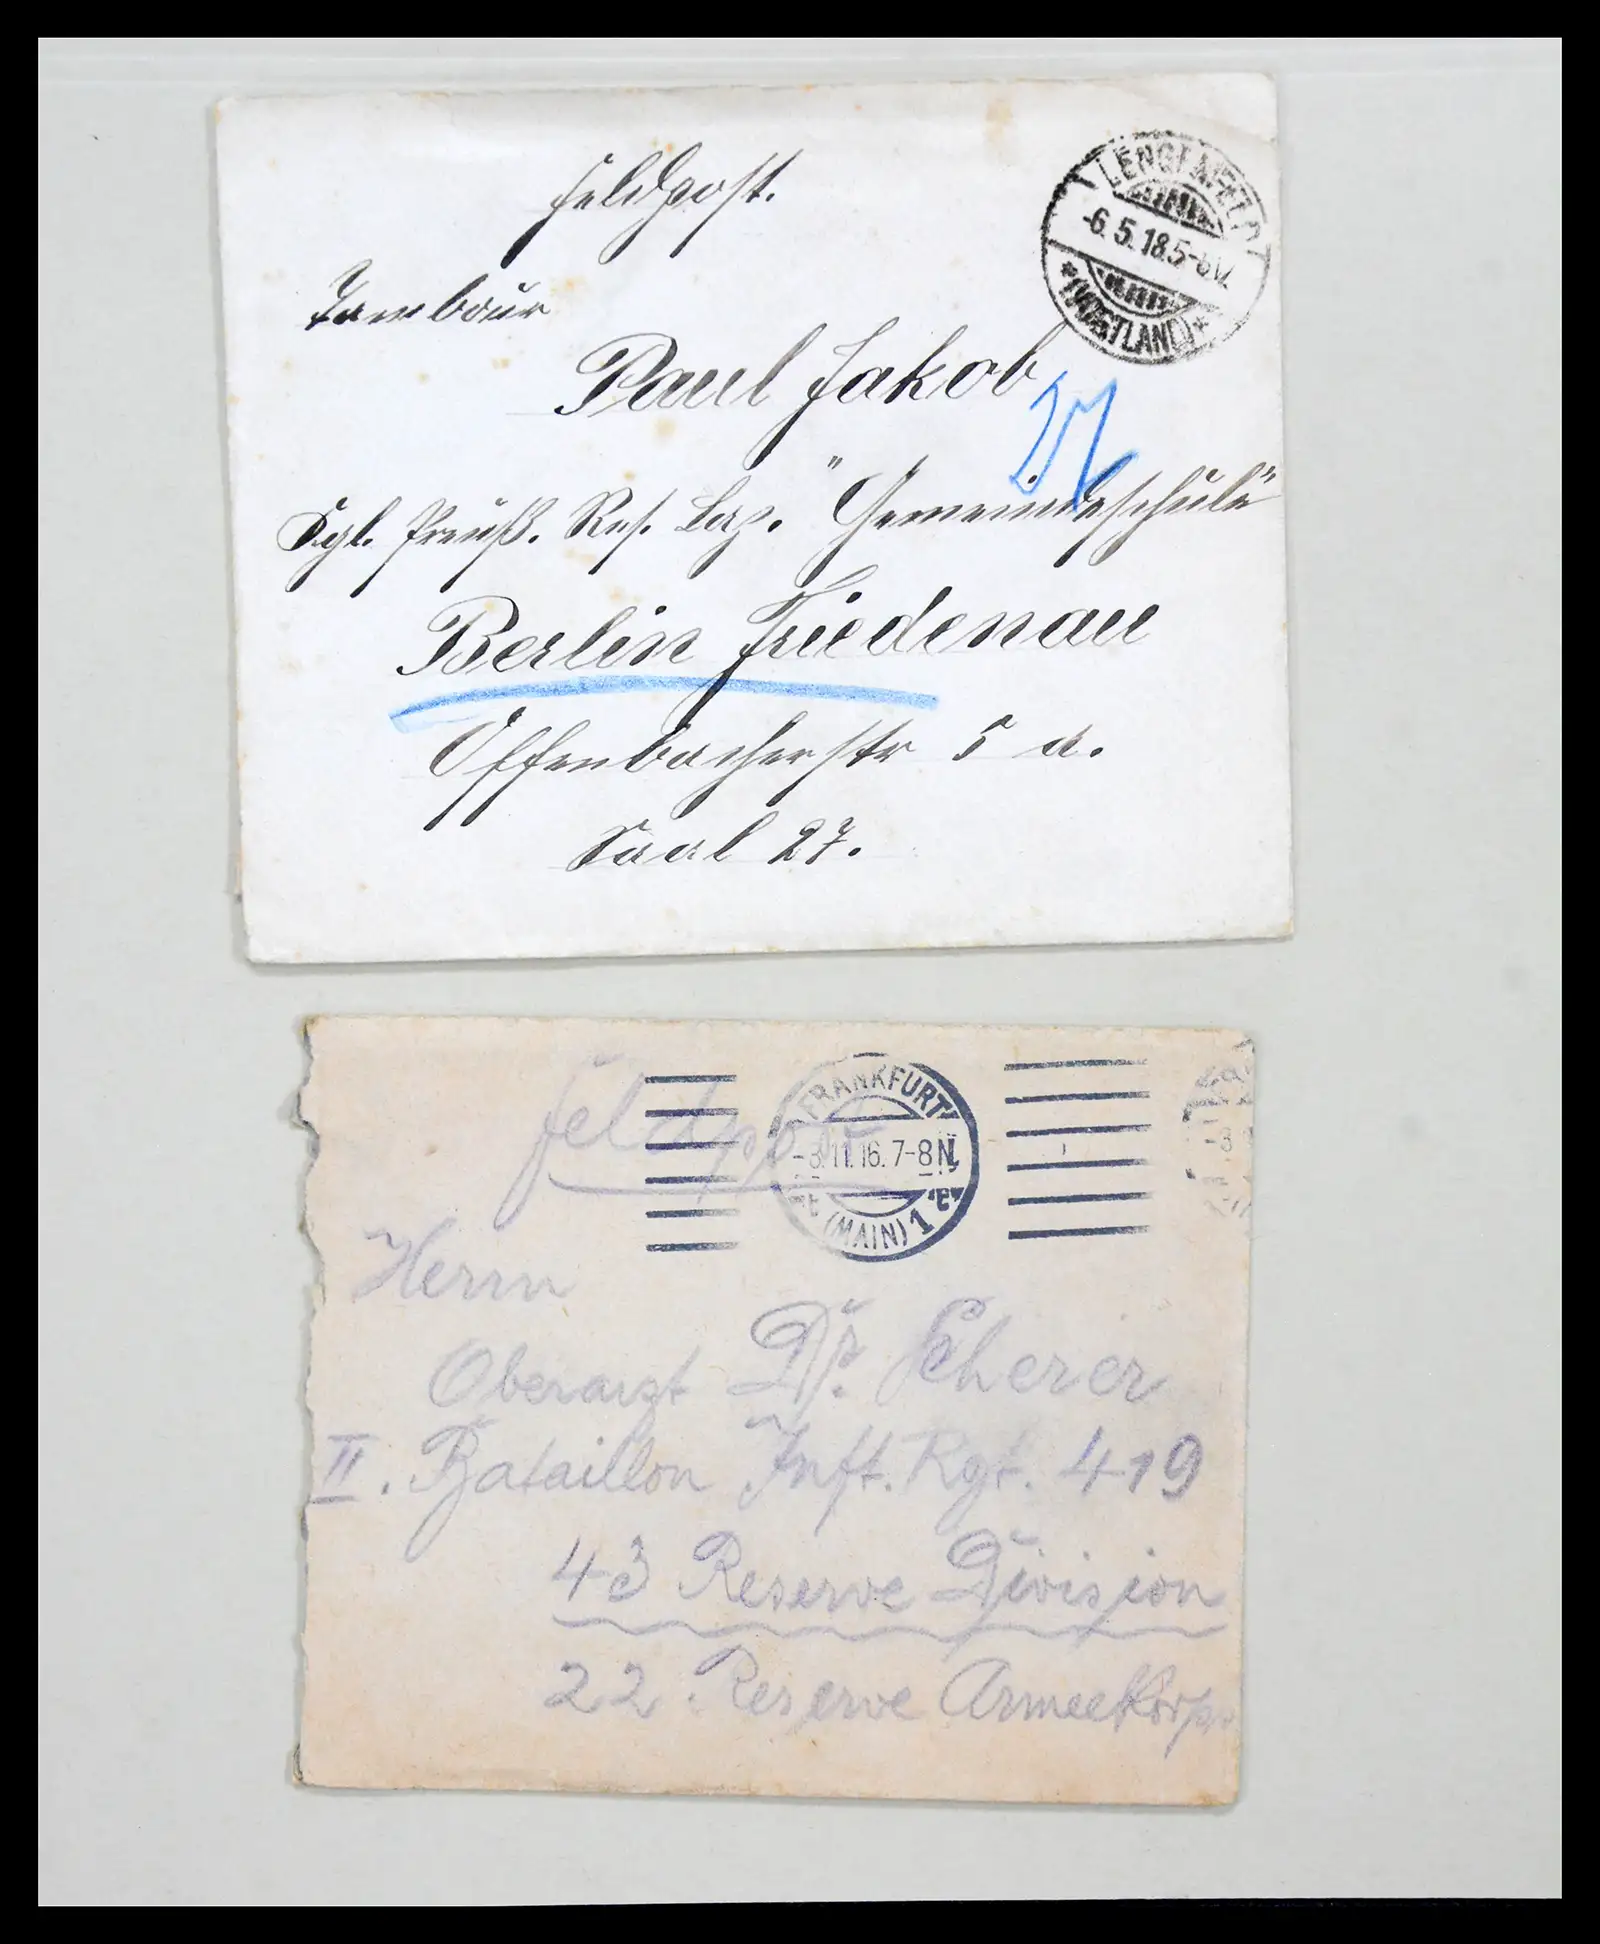 Feldpost.
LENGENFELD
-6.5.18.5-6N.
*(VOGTLAND)*
Tambour
Paul Jakob
27
Kgl. Preuß. Res. Laz. "Gemeindeschule"
Berlin Friedenau
Offenbacherstr 5 a.
Saal 27.
Feldpost
FRANKFURT
-3.11.16.7-8N.
(MAIN) 1
Herrn
Oberarzt Dr. Scherer
II. Bataillon Inft. Rgt. 419
43 Reserve Division
22. Reserve Armeekorps